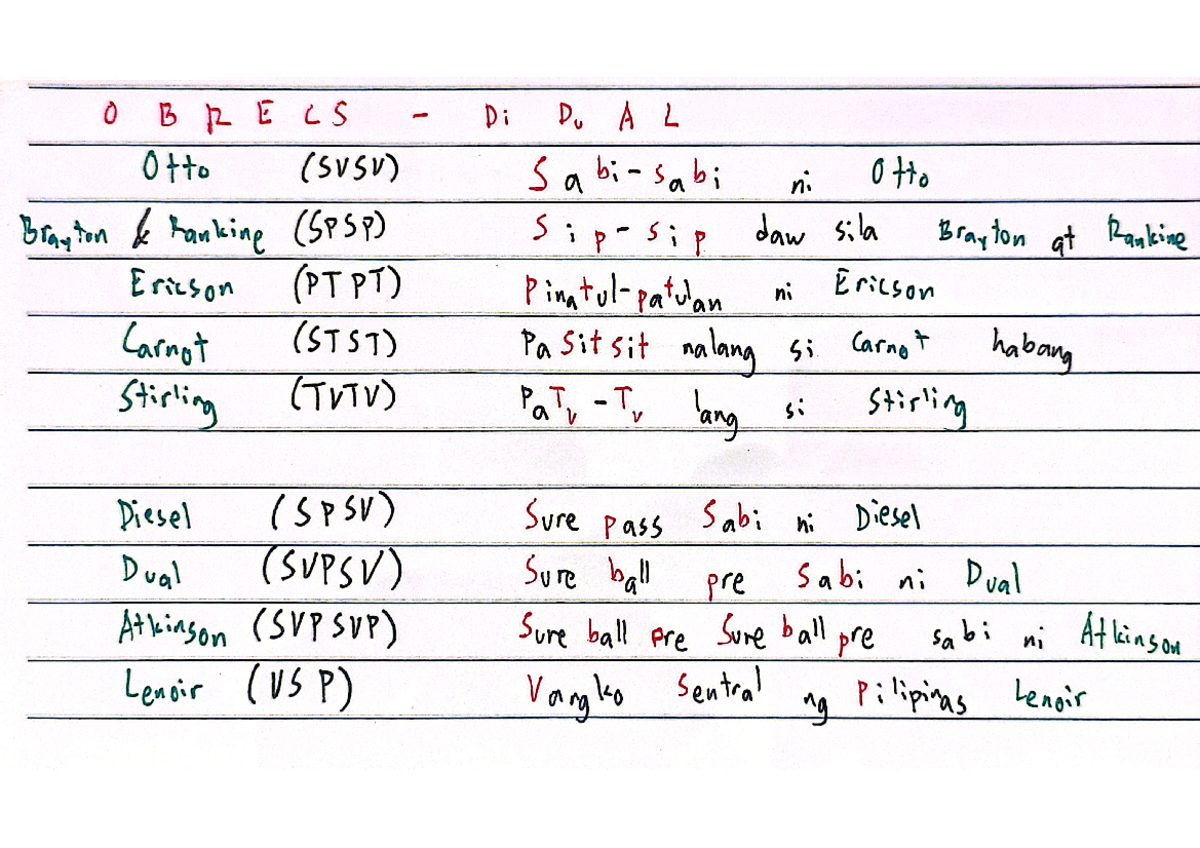 O B R E C S - Di Du A L
Otto (SVSV) Sabi-sabi ni Otto
Brayton & Rankine (SPSP) Sip-sip daw sila Brayton at Rankine
Ericson (PTPT) Pinatul-patulan ni Ericson
Carnot (STST) Pa Sit sit nalang si Carnot habang
Stirling (TVTV) PaTv-Tv lang si Stirling
Diesel (SPSV) Sure pass Sabi ni Diesel
Dual (SVPSV) Sure ball pre Sabi ni Dual
Atkinson (SVPSVP) Sure ball pre Sure ball pre sabi ni Atkinson
Lenoir (VSP) Vangko Sentral ng Pilipinas Lenoir